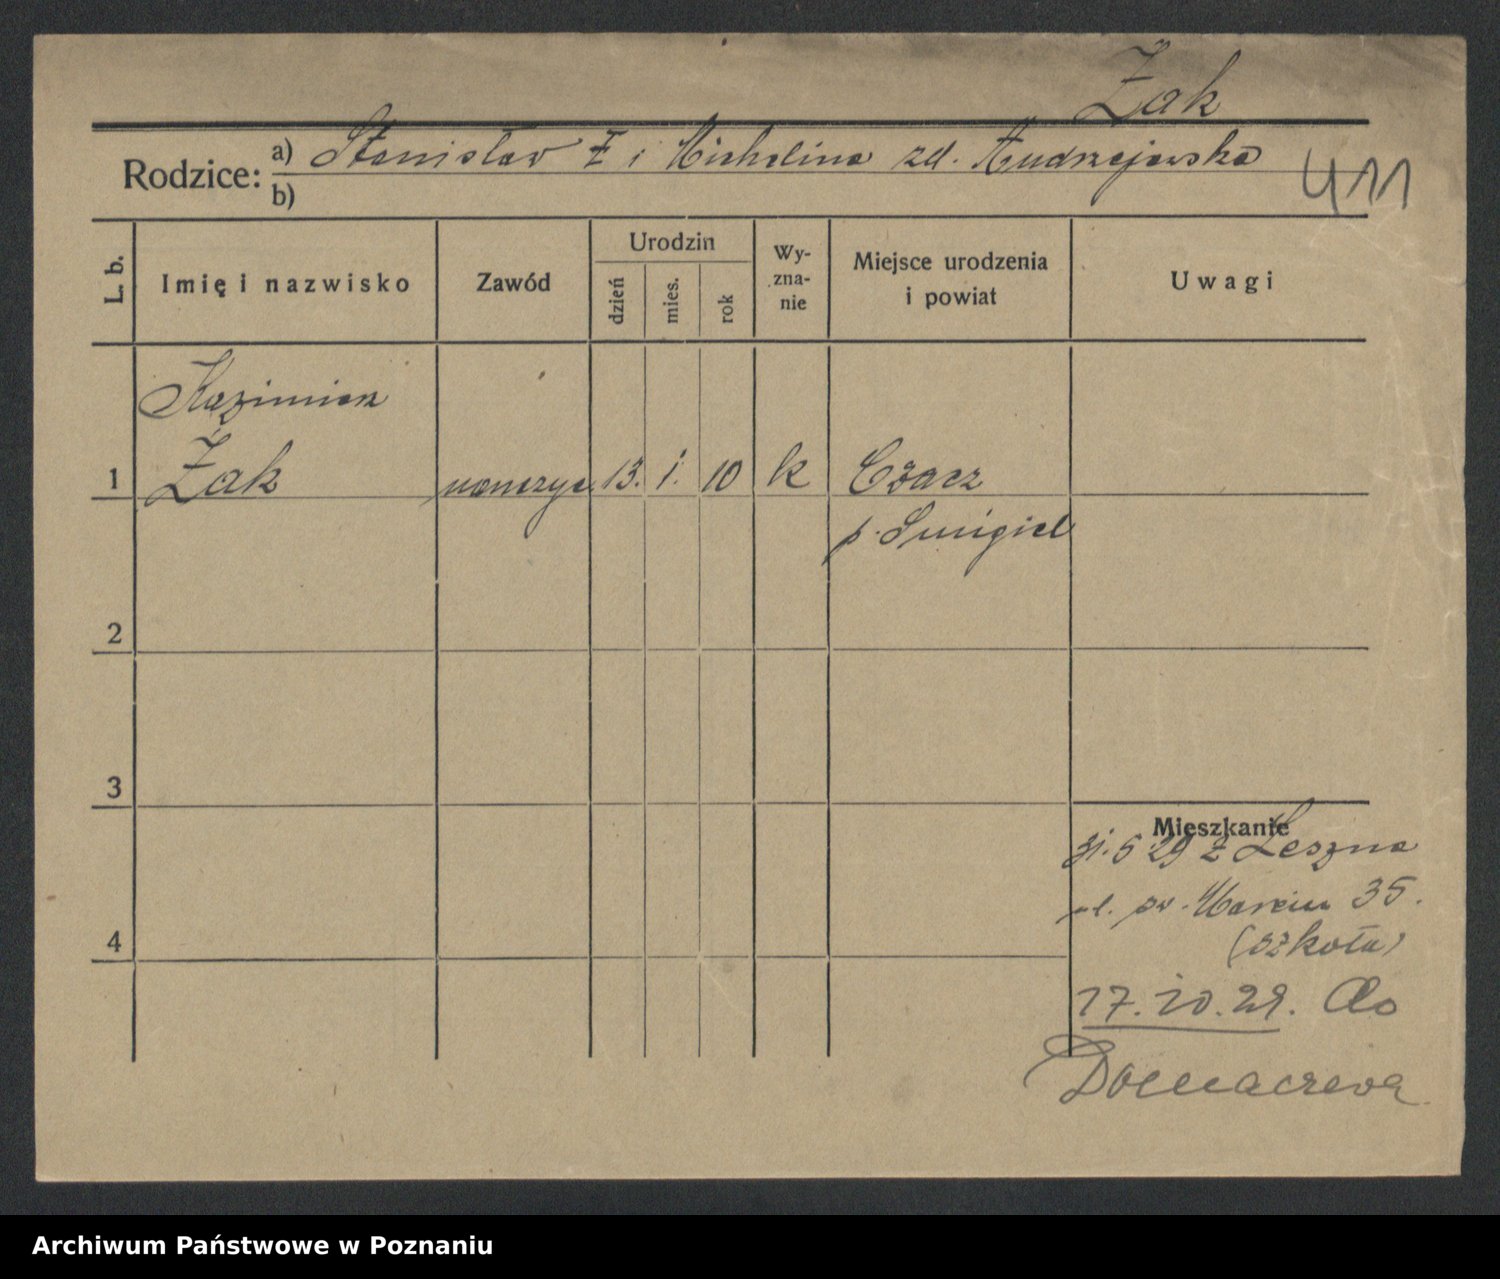 Żak
Rodzice: a) Stanisław Ż i Michalina zd. Andrzejewska
b)
411
L. b.
Imię i nazwisko
Zawód
Urodzin
dzień
mies.
rok
Wy-
zna-
nie
Miejsce urodzenia
i powiat
Uwagi
Kazimierz
1 Żak 13. 1. 10 k Czacz
p. Śmigiel
2
3
Mieszkanie
5 29 z Leszna
ul. św. Marcin 35.
(szkoła)
4
17.10.29. do
Archiwum Państwowe w Poznaniu